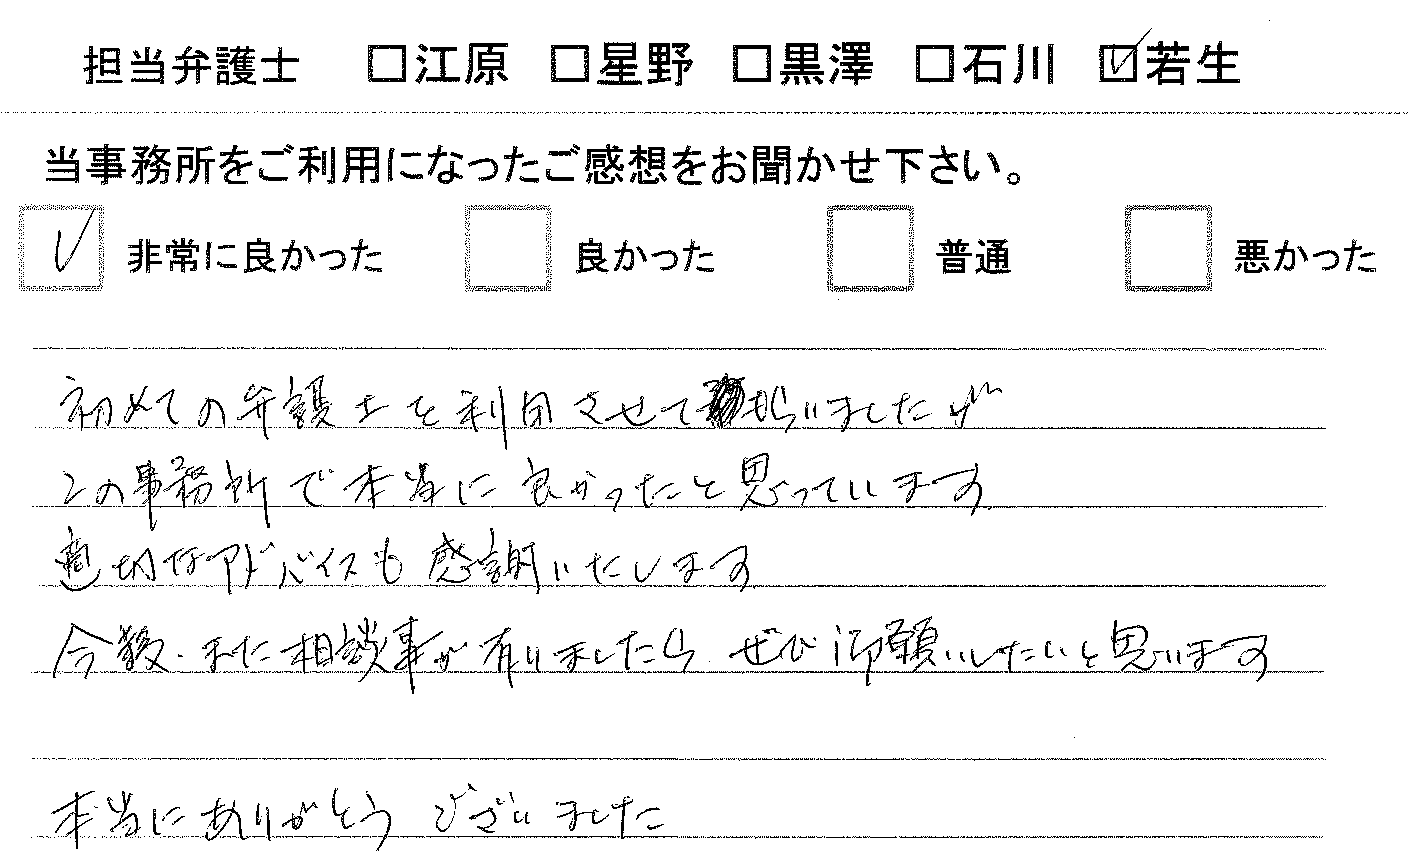 担当弁護士 □江原 □星野 □黒澤 □石川 ☑若生
当事務所をご利用になったご感想をお聞かせ下さい。
☑ 非常に良かった □ 良かった □ 普通 □ 悪かった
初めての弁護士を利用させてもらいましたが
この事務所で本当に良かったと思っています
適切なアドバイスも感謝いたします
今後、また相談事が有りましたら、ぜひ御願いしたいと思います
本当にありがとうございました